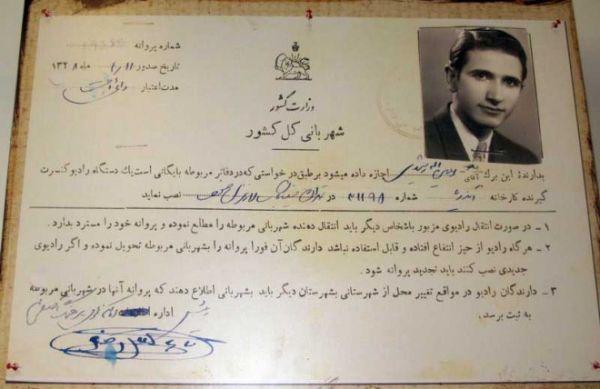 شماره پروانه
تاریخ صدور ۱۱ر۱ ماه ۱۳۲۸
مدت اعتبار
وزارت کشور
شهربانی کل کشور
بدارندهٔ این برك آقای اجازه داده میشود برطبق درخواستی که در دفاتر مربوطه بایگانی است یك دستگاه رادیو کنسرت
گیرنده کارخانه شماره ۳۱۱۹۸ در تهران نصب نماید
۱ ـ در صورت انتقال رادیوی مزبور باشخاص دیگر باید انتقال دهنده شهربانی مربوطه را مطلع نموده و پروانه خود را مسترد بدارد.
۲ ـ هرگاه رادیو از حیز انتفاع افتاده و قابل استفاده نباشد دارندگان آن فورا پروانه را بشهربانی مربوطه تحویل نموده و اگر رادیوی
جدیدی نصب کنند باید تجدید پروانه شود.
۳ ـ دارندگان رادیو در مواقع تغییر محل از شهرستانی بشهرستان دیگر باید بشهربانی اطلاع دهند که پروانه آنها در شهربانی مربوطه
به ثبت برسد.
اداره